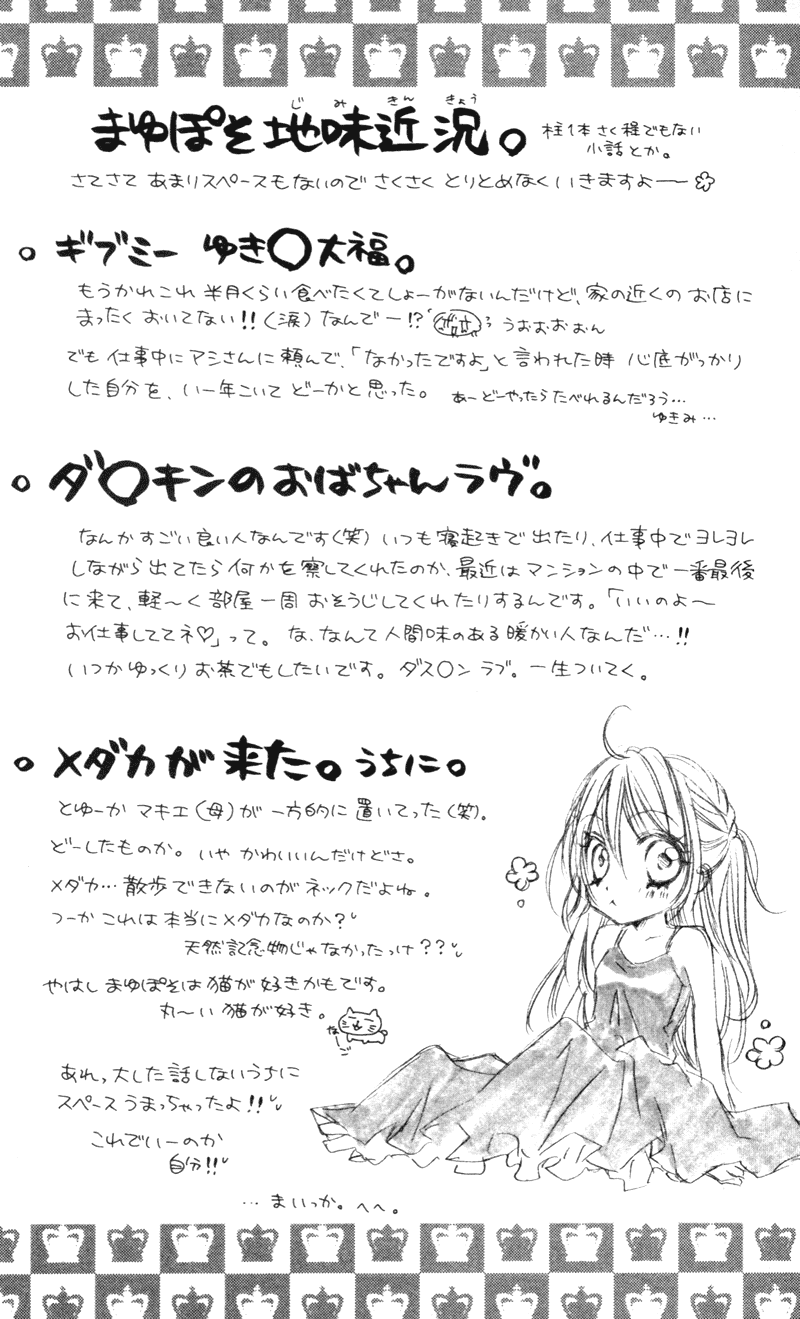 まゆぽそ地味近況。
じみきんきょう
柱1本さく程でもない
小話とか。
さてさて あまりスペースもないので さくさく とりとめなくいきますよー
。ギブミー ゆき○大福。
もうかれこれ 半月くらい食べたくてしょーがないんだけど、家の近くの お店に
まったく おいてない!!(涙)なんでー!? うおおおぉん
でも 仕事中にアシさんに 頼んで、「なかったですよ」と言われた時 心底がっかり
した自分を、いー年こいて どーかと思った。
あーどーやったらたべれるんだろう…
ゆきみ…
。ダ○キンのおばちゃんラヴ。
なんか すごい 良い人なんです(笑) いつも 寝起きで 出たり、仕事中で ヨレヨレ
しながら 出てたら 何かを 察してくれたのか、最近は マンションの中で 一番最後
に 来て、軽〜く 部屋一周 おそうじしてくれたりするんです。「いいのよ〜
お仕事しててネ♡」って。 な、なんて 人間味のある 暖かい人なんだ…!!
いつか ゆっくり お茶でもしたいです。 ダス○ン ラブ。一生ついてく。
。メダカが 来た。うちに。
とゆーか マキエ(母)が 一方的に 置いてった(笑)。
どーしたものか。いや かわいいんだけどさ。
メダカ…散歩できないのが ネックだよね。
つーか これは 本当に メダカなのか?
天然記念物じゃなかったっけ??
やはし まゆぽそは 猫が 好きかもです。
丸〜い 猫が好き。
なーご
あれっ 大した話しないうちに
スペースうまっちゃったよ!!
これでいーのか
自分!!
…まいっか。へへ。